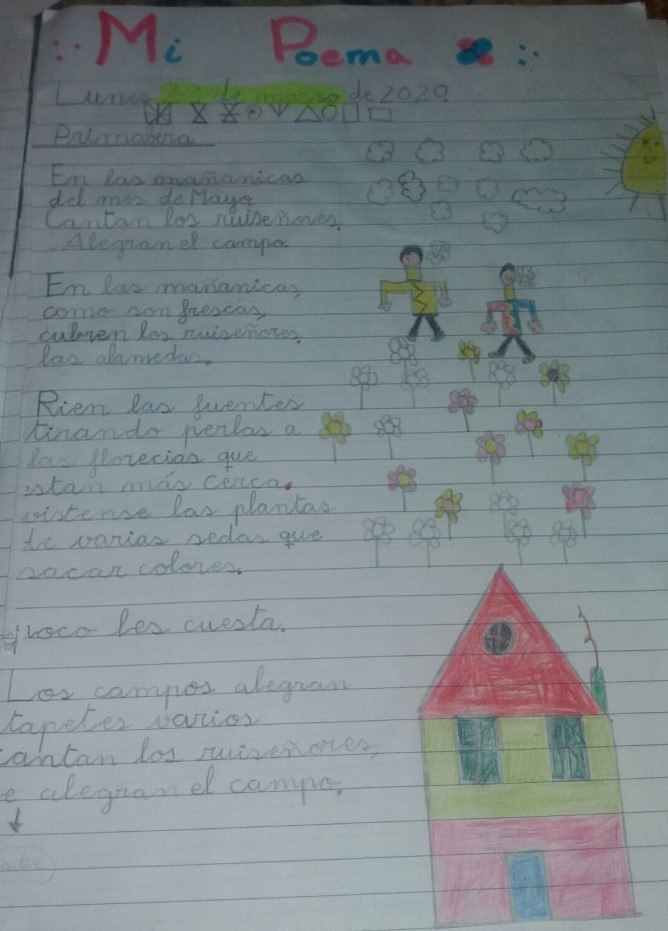 Mi Poema
Lunes 23 de marzo de 2020
Primabera
En las mañanicas
del mes de Mayo
Cantan los ruiseñores.
Alegran el campo.
En las mañanicas,
como son frescas,
cubren los ruiseñores
las alamedas.
Rien las fuentes
tirando perlas a
las florecias que
estan más cerca.
vistense las plantas
de varias sedas que
sacar colores.
poco les cuesta.
Los campos alegran
tapetes varios
cantan los ruiseñores,
e alegran el campo.